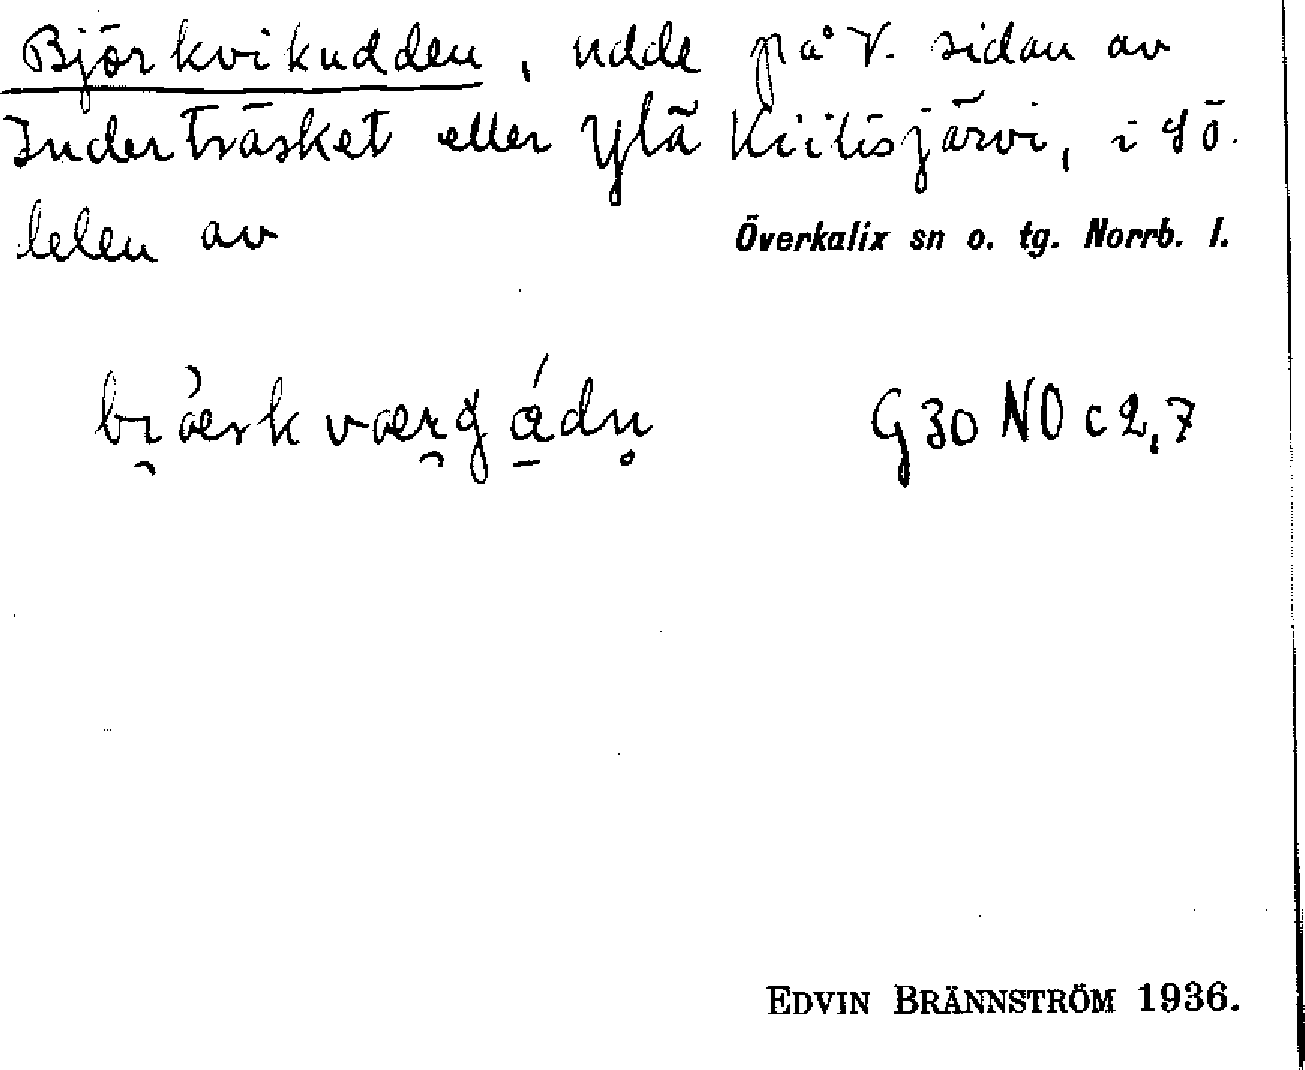 Björkvikudden, udde på V. sidan av
Inderträsket eller Ylä Kiilisjärvi, i sö.
delen av Överkalix sn o. tg. Norrb. l.
G30 NO c 2,7
EDVIN BRÄNNSTRÖM 1936.